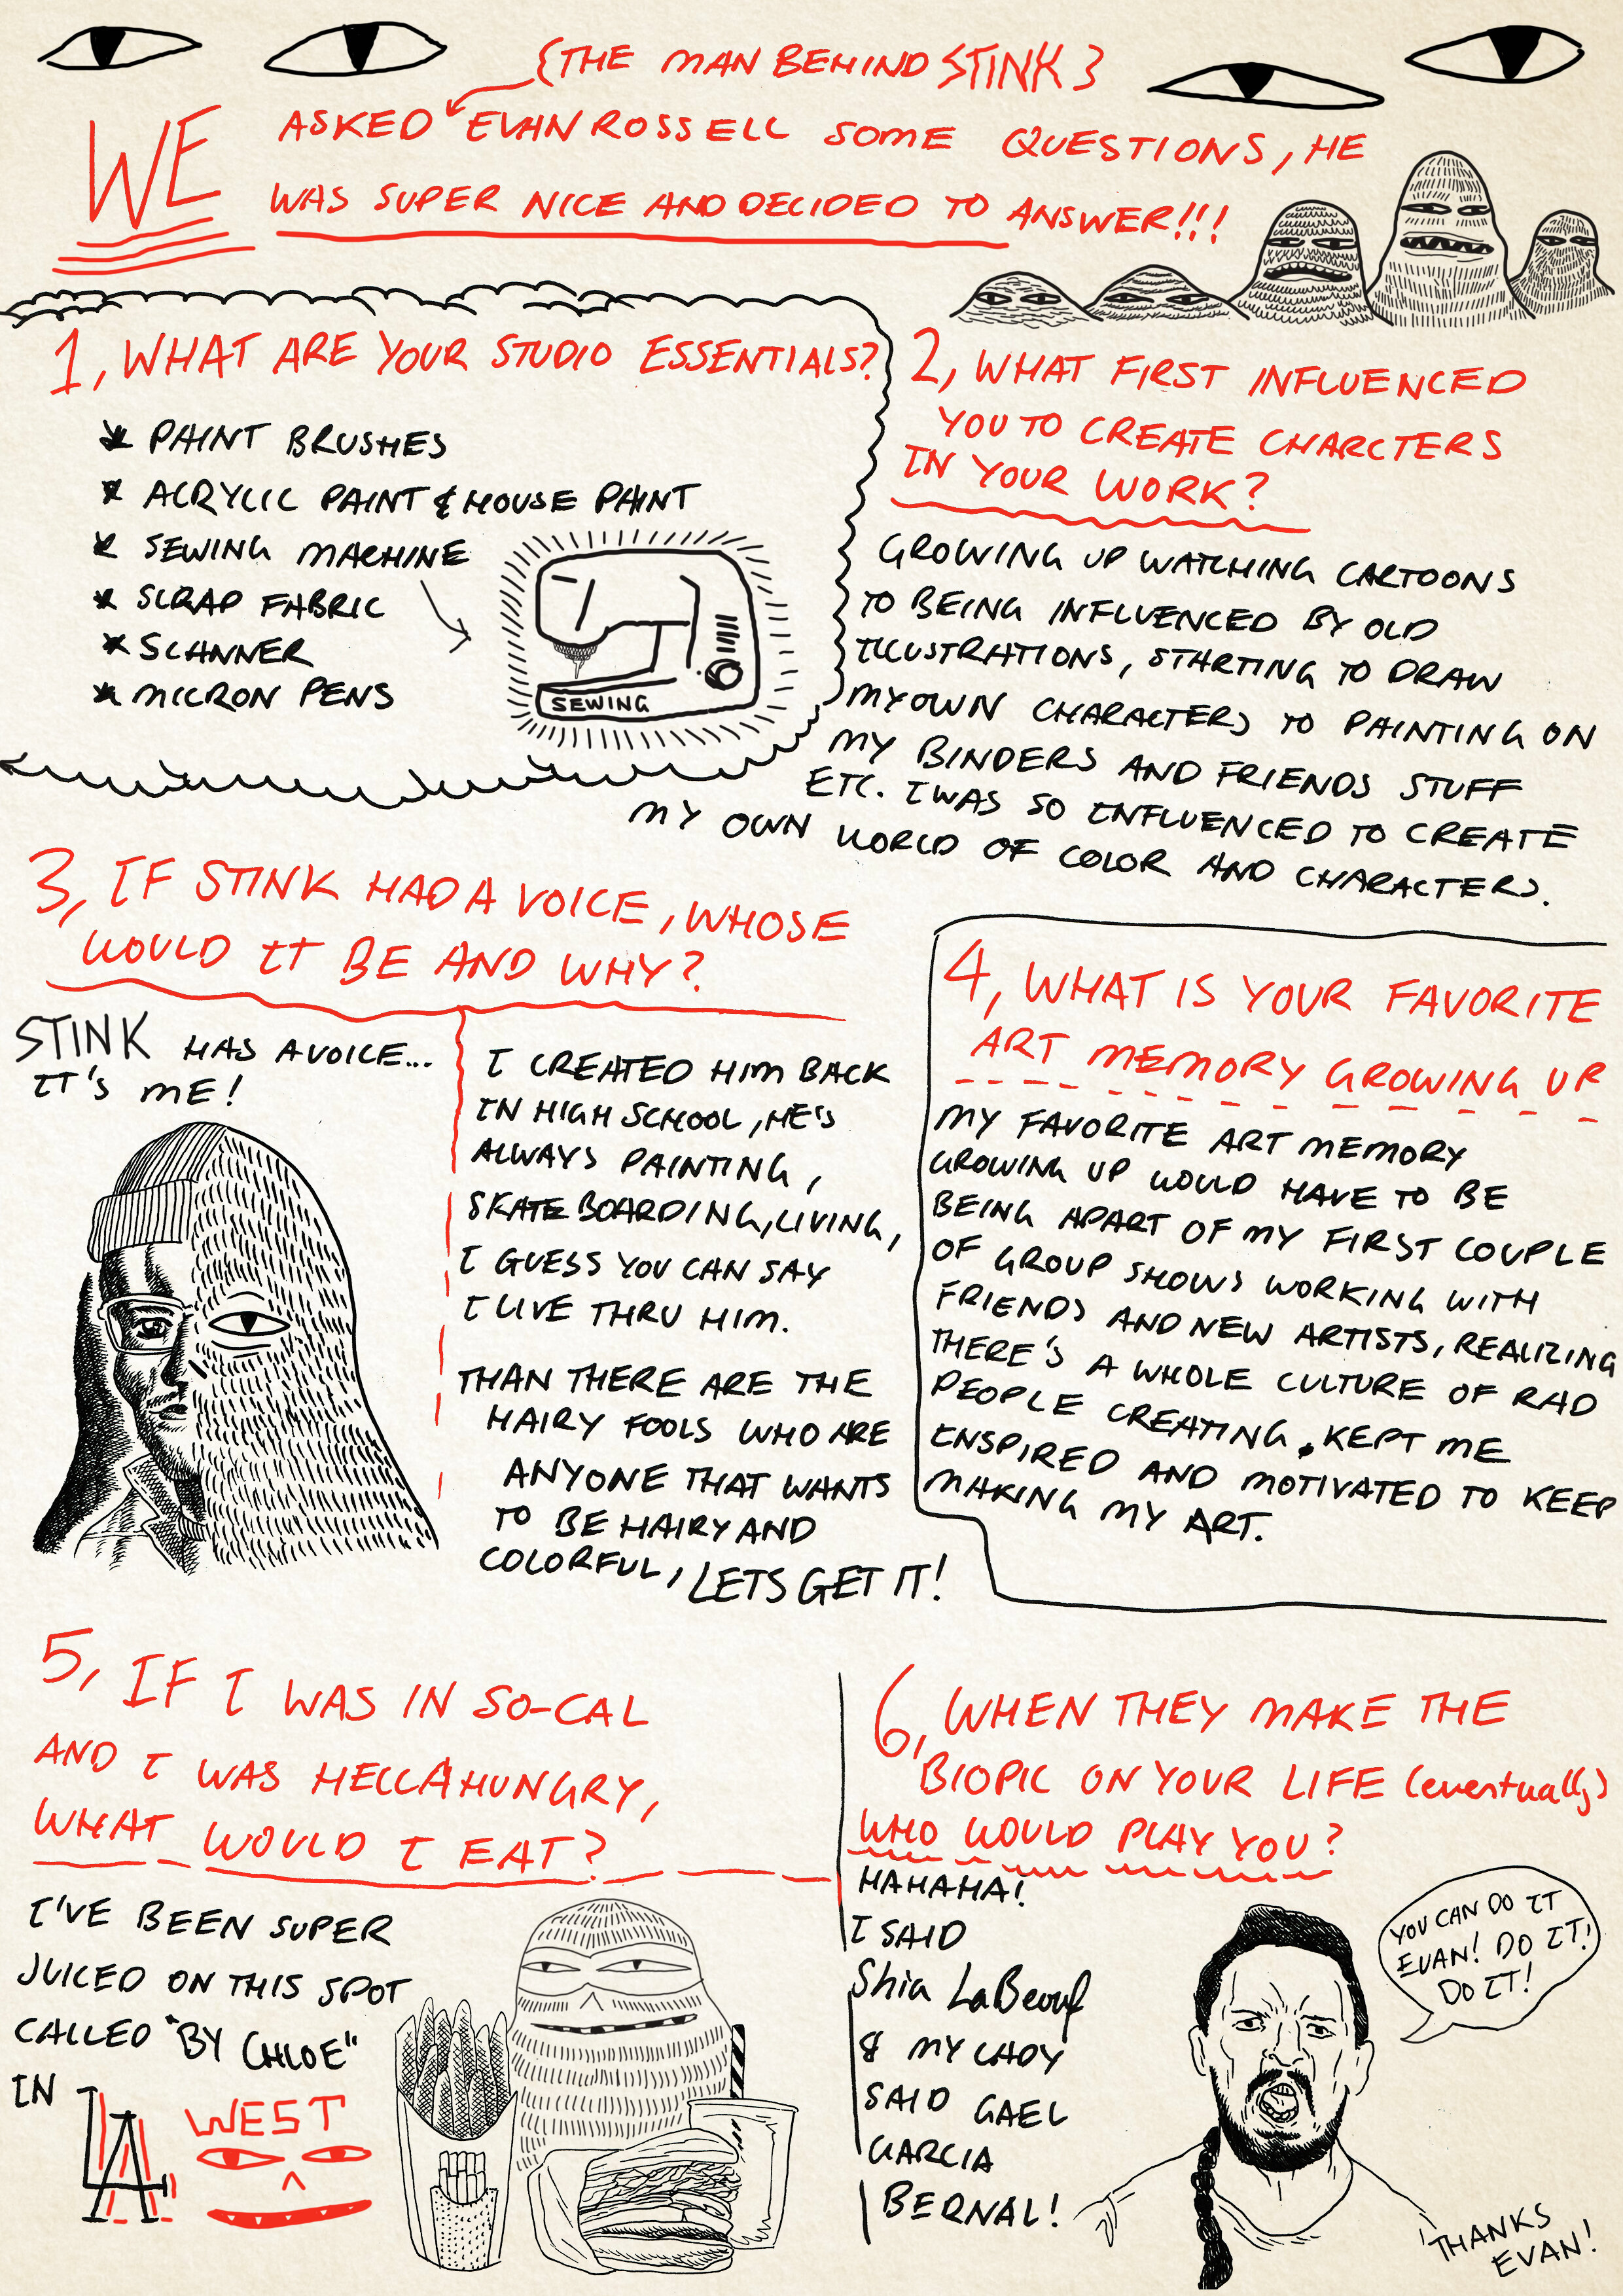 {THE MAN BEHIND STINK}
WE ASKED EVAN ROSSELL SOME QUESTIONS, HE
WAS SUPER NICE AND DECIDED TO ANSWER!!!
1, WHAT ARE YOUR STUDIO ESSENTIALS?
* PAINT BRUSHES
* ACRYLIC PAINT & HOUSE PAINT
* SEWING MACHINE
* SCRAP FABRIC
* SCANNER
* MICRON PENS
SEWING
2, WHAT FIRST INFLUENCED
YOU TO CREATE CHARCTERS
IN YOUR WORK?
GROWING UP WATCHING CARTOONS
TO BEING INFLUENCED BY OLD
ILLUSTRATIONS, STARTING TO DRAW
MY OWN CHARACTERS TO PAINTING ON
MY BINDERS AND FRIENDS STUFF
ETC. I WAS SO INFLUENCED TO CREATE
MY OWN WORLD OF COLOR AND CHARACTERS.
3, IF STINK HAD A VOICE, WHOSE
WOULD IT BE AND WHY?
STINK HAS A VOICE...
IT'S ME!
I CREATED HIM BACK
IN HIGH SCHOOL, HE'S
ALWAYS PAINTING,
SKATEBOARDING, LIVING,
I GUESS YOU CAN SAY
I LIVE THRU HIM.
THAN THERE ARE THE
HAIRY FOOLS WHO ARE
ANYONE THAT WANTS
TO BE HAIRY AND
COLORFUL, LETS GET IT!
4, WHAT IS YOUR FAVORITE
ART MEMORY GROWING UP
MY FAVORITE ART MEMORY
GROWING UP WOULD HAVE TO BE
BEING APART OF MY FIRST COUPLE
OF GROUP SHOWS WORKING WITH
FRIENDS AND NEW ARTISTS, REALIZING
THERE'S A WHOLE CULTURE OF RAD
PEOPLE CREATING, KEPT ME
INSPIRED AND MOTIVATED TO KEEP
MAKING MY ART.
5, IF I WAS IN SO-CAL
AND I WAS HELLA HUNGRY,
WHAT WOULD I EAT?
I'VE BEEN SUPER
JUICED ON THIS SPOT
CALLED "BY CHLOE"
IN LA
WEST
6, WHEN THEY MAKE THE
BIOPIC ON YOUR LIFE (eventually)
WHO WOULD PLAY YOU?
HAHAHA!
I SAID
Shia LaBeouf
& MY LADY
SAID GAEL
GARCIA
BERNAL!
YOU CAN DO IT
EVAN! DO IT!
DO IT!
THANKS
EVAN!